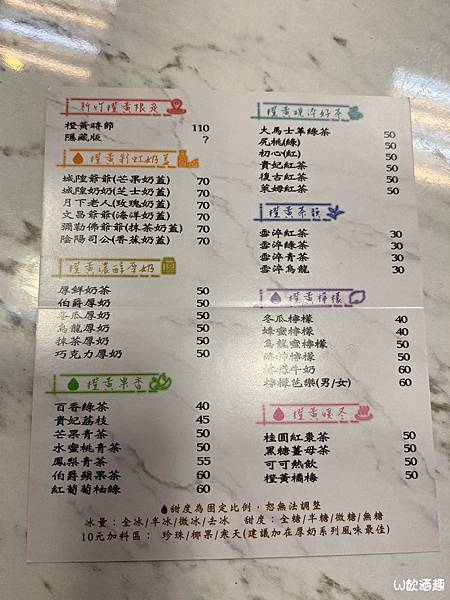 新竹橙黃限定
橙黃時節 110
隱藏版 ?
橙黃彩虹奶蓋
城隍爺爺(芒果奶蓋) 70
城隍奶奶(芝士奶蓋) 70
月下老人(玫瑰奶蓋) 70
文昌爺爺(海洋奶蓋) 70
彌勒佛爺爺(抹茶奶蓋) 70
陰陽司公(香蕉奶蓋) 70
橙黃濃醇厚奶
厚鮮奶茶 50
伯爵厚奶 50
冬瓜厚奶 50
烏龍厚奶 50
抹茶厚奶 50
巧克力厚奶 50
橙黃果香
百香綠茶 40
貴妃荔枝 45
芒果青茶 50
水蜜桃青茶 50
鳳梨青茶 55
伯爵蘋果茶 60
紅葡萄柚綠 60
橙黃現淬好茶
大馬士革綠茶 50
尻桃(綠) 50
初心(紅) 50
貴妃紅茶 50
復古紅茶 50
萊姆紅茶 50
橙黃茶韻
雲淬紅茶 30
雲淬綠茶 30
雲淬青茶 30
雲淬烏龍 30
橙黃檸檬
冬瓜檸檬 40
蜂蜜檸檬 40
烏龍蜜檸檬 50
檸檬 50
檸檬牛奶 60
檸檬芭樂(男/女) 60
橙黃暖冬
桂圓紅棗茶 50
黑糖薑母茶 50
可可熱飲 50
橙黃橘梅 50
甜度為固定比例,恕無法調整
冰量:全冰/半冰/微冰/去冰 甜度:全糖/半糖/微糖/無糖
10元加料區: 珍珠/椰果/寒天(建議加在厚奶系列風味最佳)
W飲酒趣